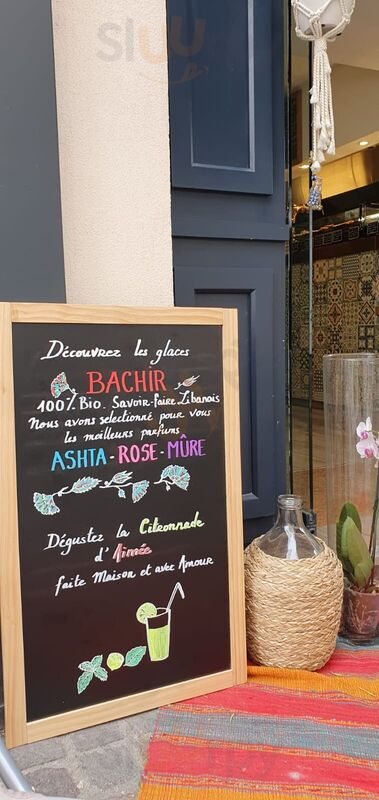 sluu
Découvrez les glaces
BACHIR
100% Bio. Savoir-faire Libanais
Nous avons selectionné pour vous
les meilleurs parfums
ASHTA - ROSE - MÛRE
Dégustez la Citronnade
d'Aimée
faite Maison et avec Amour